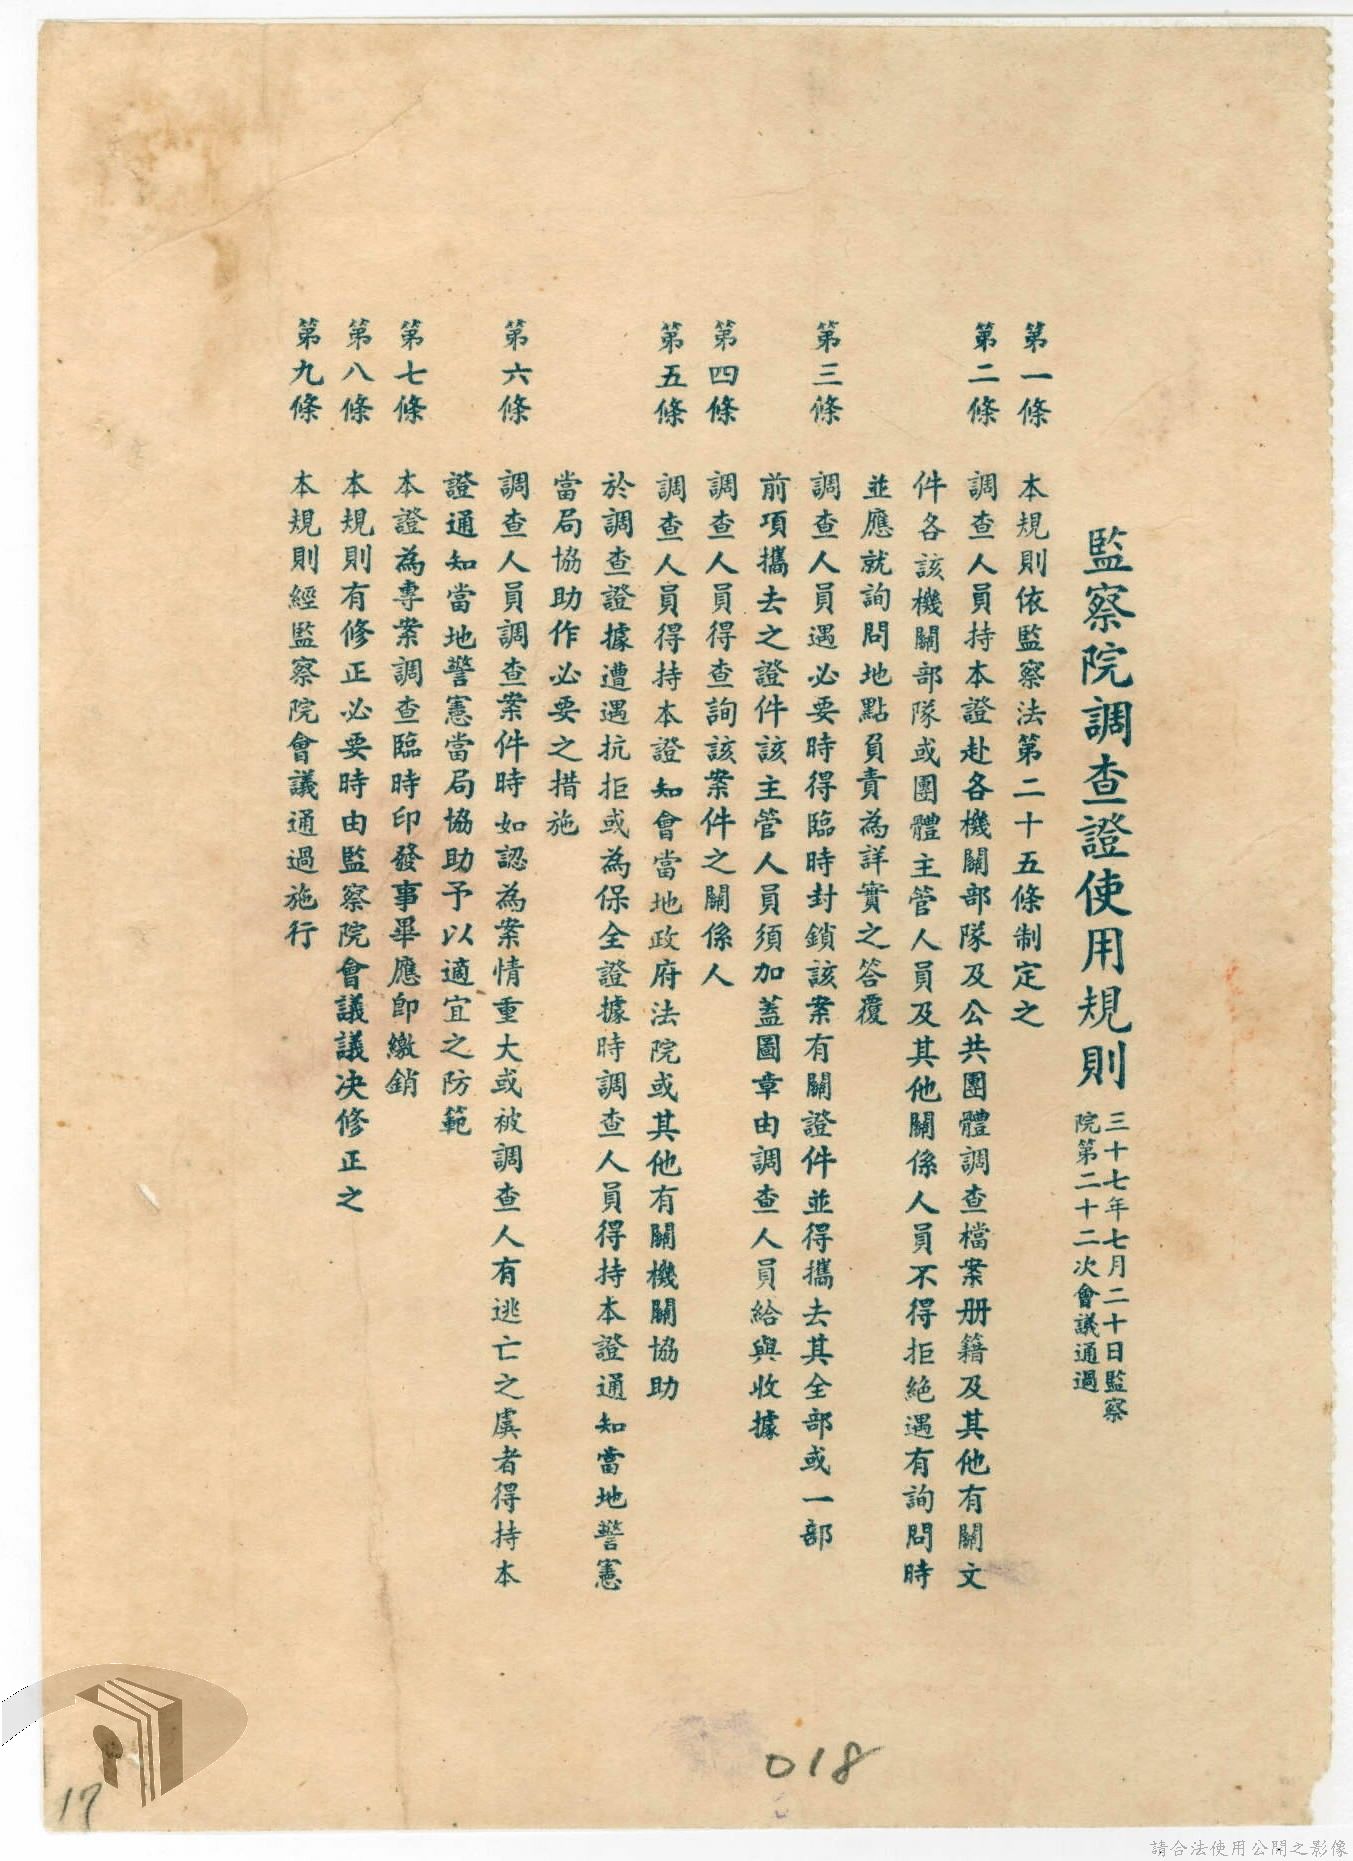 監察院調查證使用規則
三十七年七月二十日監察
院第二十二次會議通過
第一條 本規則依監察法第二十五條制定之
第二條 調查人員持本證赴各機關部隊及公共團體調查檔案册籍及其他有關文
件各該機關部隊或團體主管人員及其他關係人員不得拒絶遇有詢問時
並應就詢問地點負責為詳實之答覆
第三條 調查人員遇必要時得臨時封鎖該案有關證件並得攜去其全部或一部
前項攜去之證件該主管人員須加蓋圖章由調查人員給與收據
第四條 調查人員得查詢該案件之關係人
第五條 調查人員得持本證知會當地政府法院或其他有關機關協助
於調查證據遭遇抗拒或為保全證據時調查人員得持本證通知當地警憲
當局協助作必要之措施
第六條 調查人員調查案件時如認為案情重大或被調查人有逃亡之虞者得持本
證通知當地警憲當局協助予以適宜之防範
第七條 本證為專案調查臨時印發事畢應即繳銷
第八條 本規則有修正必要時由監察院會議議决修正之
第九條 本規則經監察院會議通過施行
018
17
請合法使用公開之影像